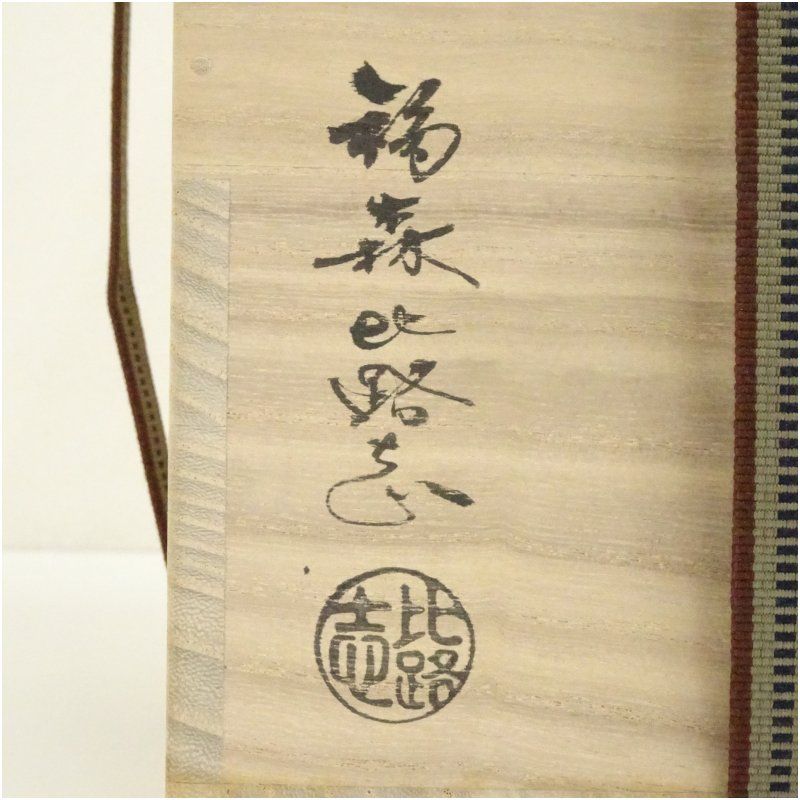 福森比路志
比路志